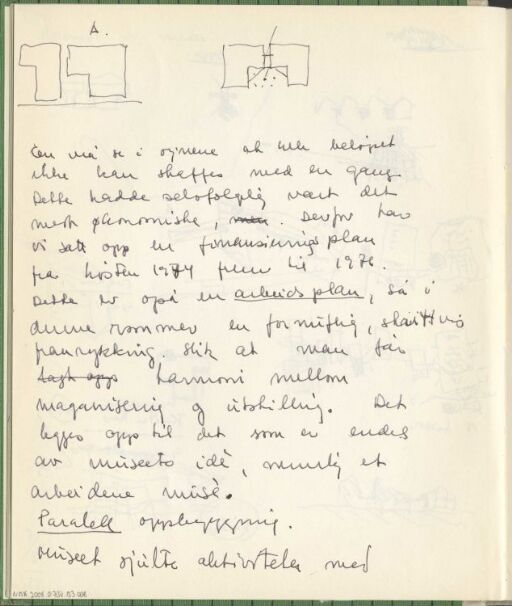 A.
En må se i øynene at hele beløpet
ikke kan skaffes med en gang.
Dette hadde selvfølgelig vært det
mest økonomiske, men. Derfor har
vi satt opp en finansierings plan
fra høsten 1974 frem til 1976.
Dette er også en arbeids plan, så i
denne rommer en fornuftig, skrittvis
framrykking. Slik at man får
lagt opp harmoni mellom
magasinering og utstilling. Det
legges opp til det som er endel
av museets idè, nemlig et
arbeidene musè.
Paralell oppbygging.
Museet sjølte aktiviteter med
NMK 2005.0734.113.008